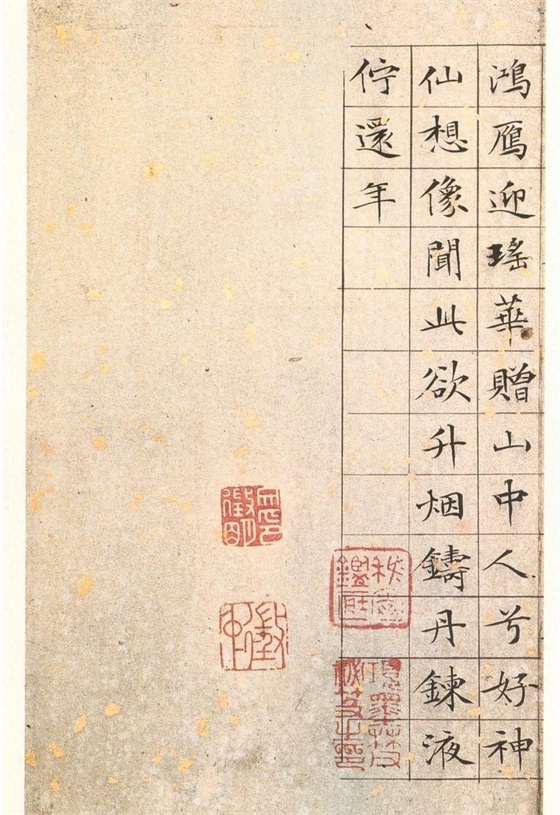 鴻鴈迎瑤華贈山中人兮好神
仙想像聞此欲升烟鑄丹鍊液
佇還年